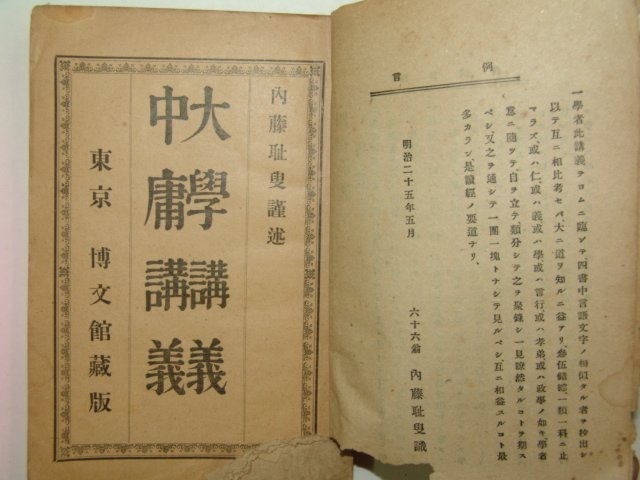 例言
一學者此講義ヲヨムニ臨ンテ四書中言語文字ノ相似タル者ヲ抄出シ
以テ互ニ相比考セバ、大ニ道ヲ知ルニ益アリ、參伍錯綜、一類一科ニ止
マラズ、或ハ仁、或ハ義或ハ學或ハ言行或ハ孝弟或ハ政事ノ如キ學者
意ニ隨ツテ自ヲ立テ類分シテ之ヲ聚錄シ一見瞭然タルコトヲ期ス
ベシ、又之ヲ通シテ一團一塊トナシテ見ルベシ、互ニ相益スルコト最
多カラン、是讀經ノ要道ナリ、
明治二十五年五月
六十六翁 內藤耻叟識
內藤耻叟謹述
大學講義
中庸講義
東京 博文館藏版